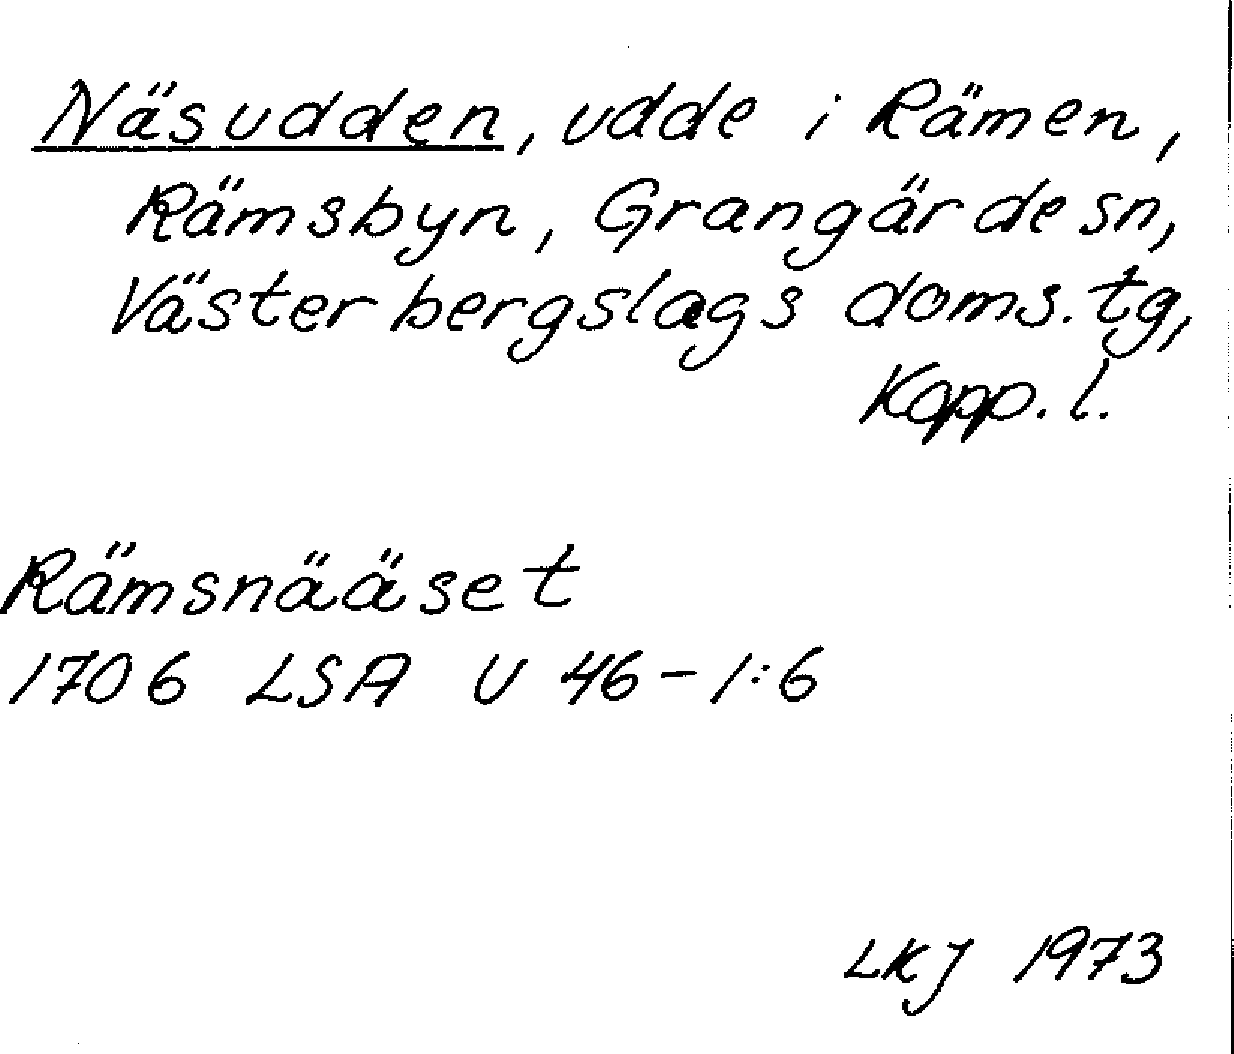 Näsudden, udde i Rämen,
Rämsbyn, Grangärde sn,
Västerbergslags doms. tg,
Kopp. l.
Rämsnääset
1706 LSA U 46-1:6
LKJ 1973